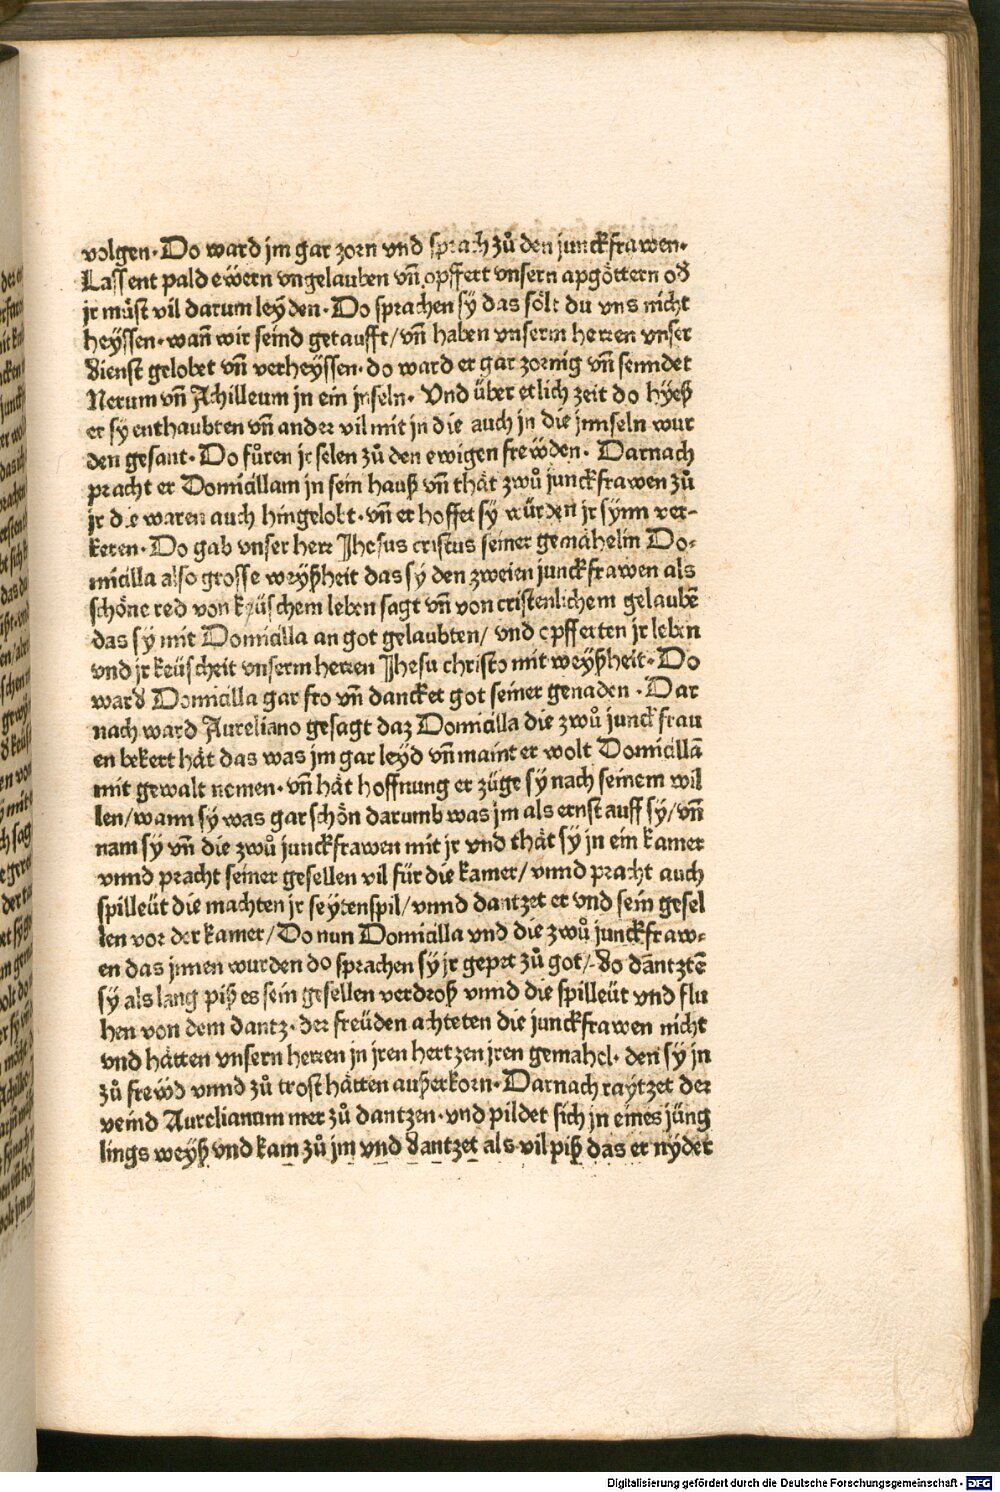 volgen· Do ward jm gar zorn vnd sprach zů den junckfrawen·
Lassent pald ewern vngelauben vñ opffert vnsern apgöttern od
jr můst vil darum leyden· Do sprachen sy das sölt du vns nicht
heyssen· wañ wir seind getaufft/ vñ haben vnserm herren vnser
dienst gelobet vñ verheyssen· do ward er gar zornig vñ senndet
Nerum vñ Achilleum jn ein jnseln· Vnd über etlich zeit do hyeß
er sy enthaubten vñ ander vil mit jn die auch jn die jnnseln wur
den gesant· Do fůren jr selen zů den ewigen frewden· Darnach
pracht er Domicillam jn sein hauß vñ thät zwů junckfrawen zů
jr die waren auch hingelobt· vñ er hoffet sy würden jr synn ver-
keren· Do gab vnser herr Jhesus cristus seiner gemähelin Do-
micilla also grosse weyßheit das sy den zweien junckfrawen als
schöne red von keüschem leben sagt vñ von cristenlichem gelaubē
das sy mit Domicilla an got gelaubten/ vnd opfferten jr leben
vnd jr keüscheit vnserm herren Jhesu christo mit weyßheit· Do
ward Domicilla gar fro vñ dancket got seiner genaden· Dar
nach ward Aureliano gesagt daz Domicilla die zwů junckfrau
en bekert hät das was jm gar leyd vñ maint er wolt Domicillā
mit gewalt nemen· vñ hät hoffnung er züge sy nach seinem wil
len/ wann sy was gar schön darumb was jm als ernst auff sy/ vñ
nam sy vñ die zwů junckfrawen mit jr vnd thät sy jn ein kamer
vnnd pracht seiner gesellen vil für die kamer/ vnnd pracht auch
spilleüt die machten jr seytenspil/ vnnd dantzet er vnd sein gesel
len vor der kamer/ Do nun Domicilla vnd die zwů junckfraw-
en das jnnen wurden do sprachen sy jr gepet zů got/ do dantztē
sy als lang piß es sein gesellen verdroß vnnd die spilleüt vnd flu
hen von dem dantz· der freüden achteten die junckfrawen nicht
vnd hätten vnsern herren jn jren hertzen jren gemahel· den sy jn
zů frewd vnnd zů trost hätten außerkorn· Darnach raytzet der
veind Aurelianum mer zů dantzen· vnd pildet sich jn eines jüng
lings weyß vnd kam zů jm vnd dantzet als vil piß das er nyder
Digitalisierung gefördert durch die Deutsche Forschungsgemeinschaft - DFG